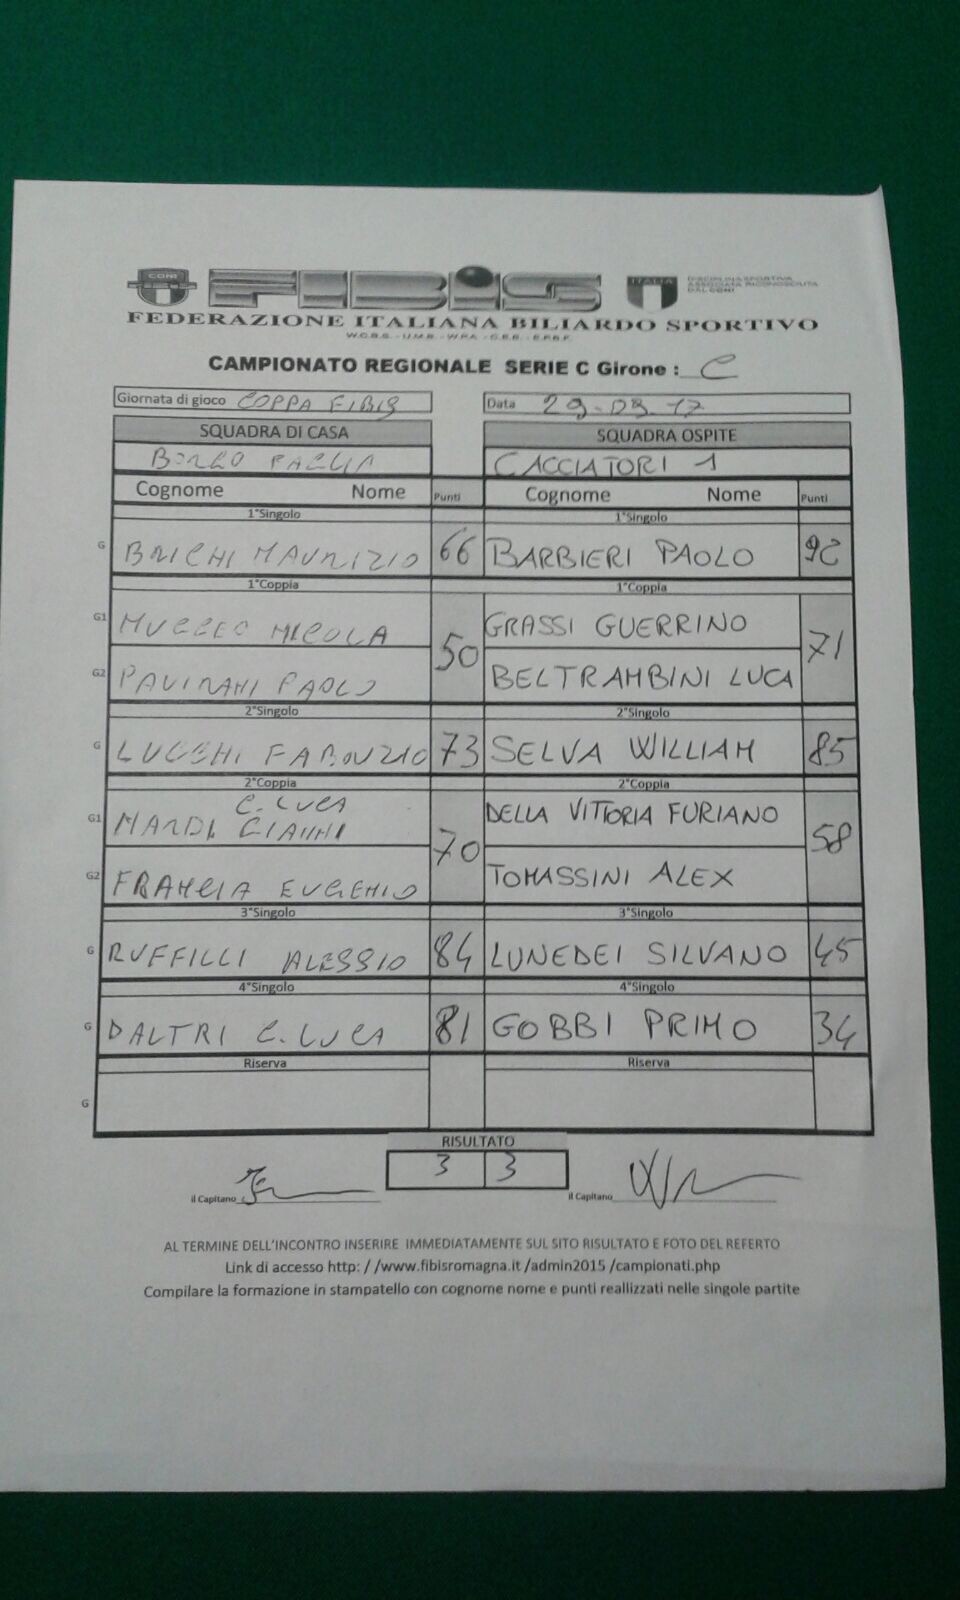 CONI
FIBIS
ITALIA
DISCIPLINA SPORTIVA
ASSOCIATA RICONOSCIUTA
DAL CONI
FEDERAZIONE ITALIANA BILIARDO SPORTIVO
CAMPIONATO REGIONALE SERIE C Girone : C
Giornata di gioco COPPA FIBIS Data 29-03-17
SQUADRA DI CASA SQUADRA OSPITE
BORGO PAGLIA CACCIATORI 1
Cognome Nome Punti Cognome Nome Punti
1°Singolo 1°Singolo
G BRICHI MAURIZIO 66 BARBIERI PAOLO 92
1°Coppia 1°Coppia
G1 NICOLA 50 GRASSI GUERRINO 71
G2 PAOLO BELTRAMBINI LUCA
2°Singolo 2°Singolo
G LUCCHI FABRIZIO 73 SELVA WILLIAM 85
2°Coppia 2°Coppia
G.LUCA
G1 NARDI GIANNI 70 DELLA VITTORIA FURIANO 58
G2 FRANCIA EUGENIO TOMASSINI ALEX
3°Singolo 3°Singolo
G RUFFILLI ALESSIO 84 LUNEDEI SILVANO 45
4°Singolo 4°Singolo
G DALTRI G.LUCA 81 GOBBI PRIMO 34
Riserva Riserva
G
RISULTATO
3 3
il Capitano il Capitano
AL TERMINE DELL'INCONTRO INSERIRE IMMEDIATAMENTE SUL SITO RISULTATO E FOTO DEL REFERTO
Link di accesso http: / /www.fibisromagna.it /admin2015 /campionati.php
Compilare la formazione in stampatello con cognome nome e punti reallizzati nelle singole partite